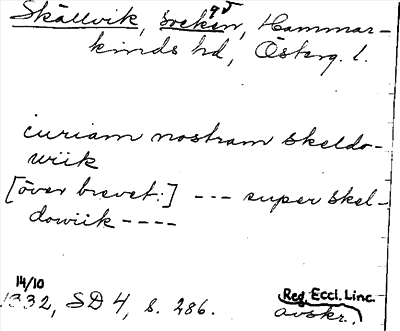 Skällvik, socken, Hammar-
kinds hd, Österg. l.
curiam nostram skeldo-
wiik
[över brevet:] --- super skel-
dowiik ----
14/10
1332, SD 4, s. 286.
Reg. Eccl. Linc.
avskr.